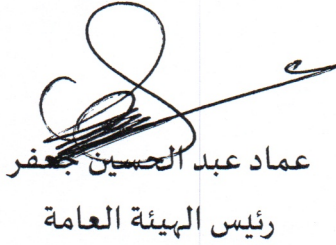 عماد عبد الحسين جعفر
رئيس الهيئة العامة